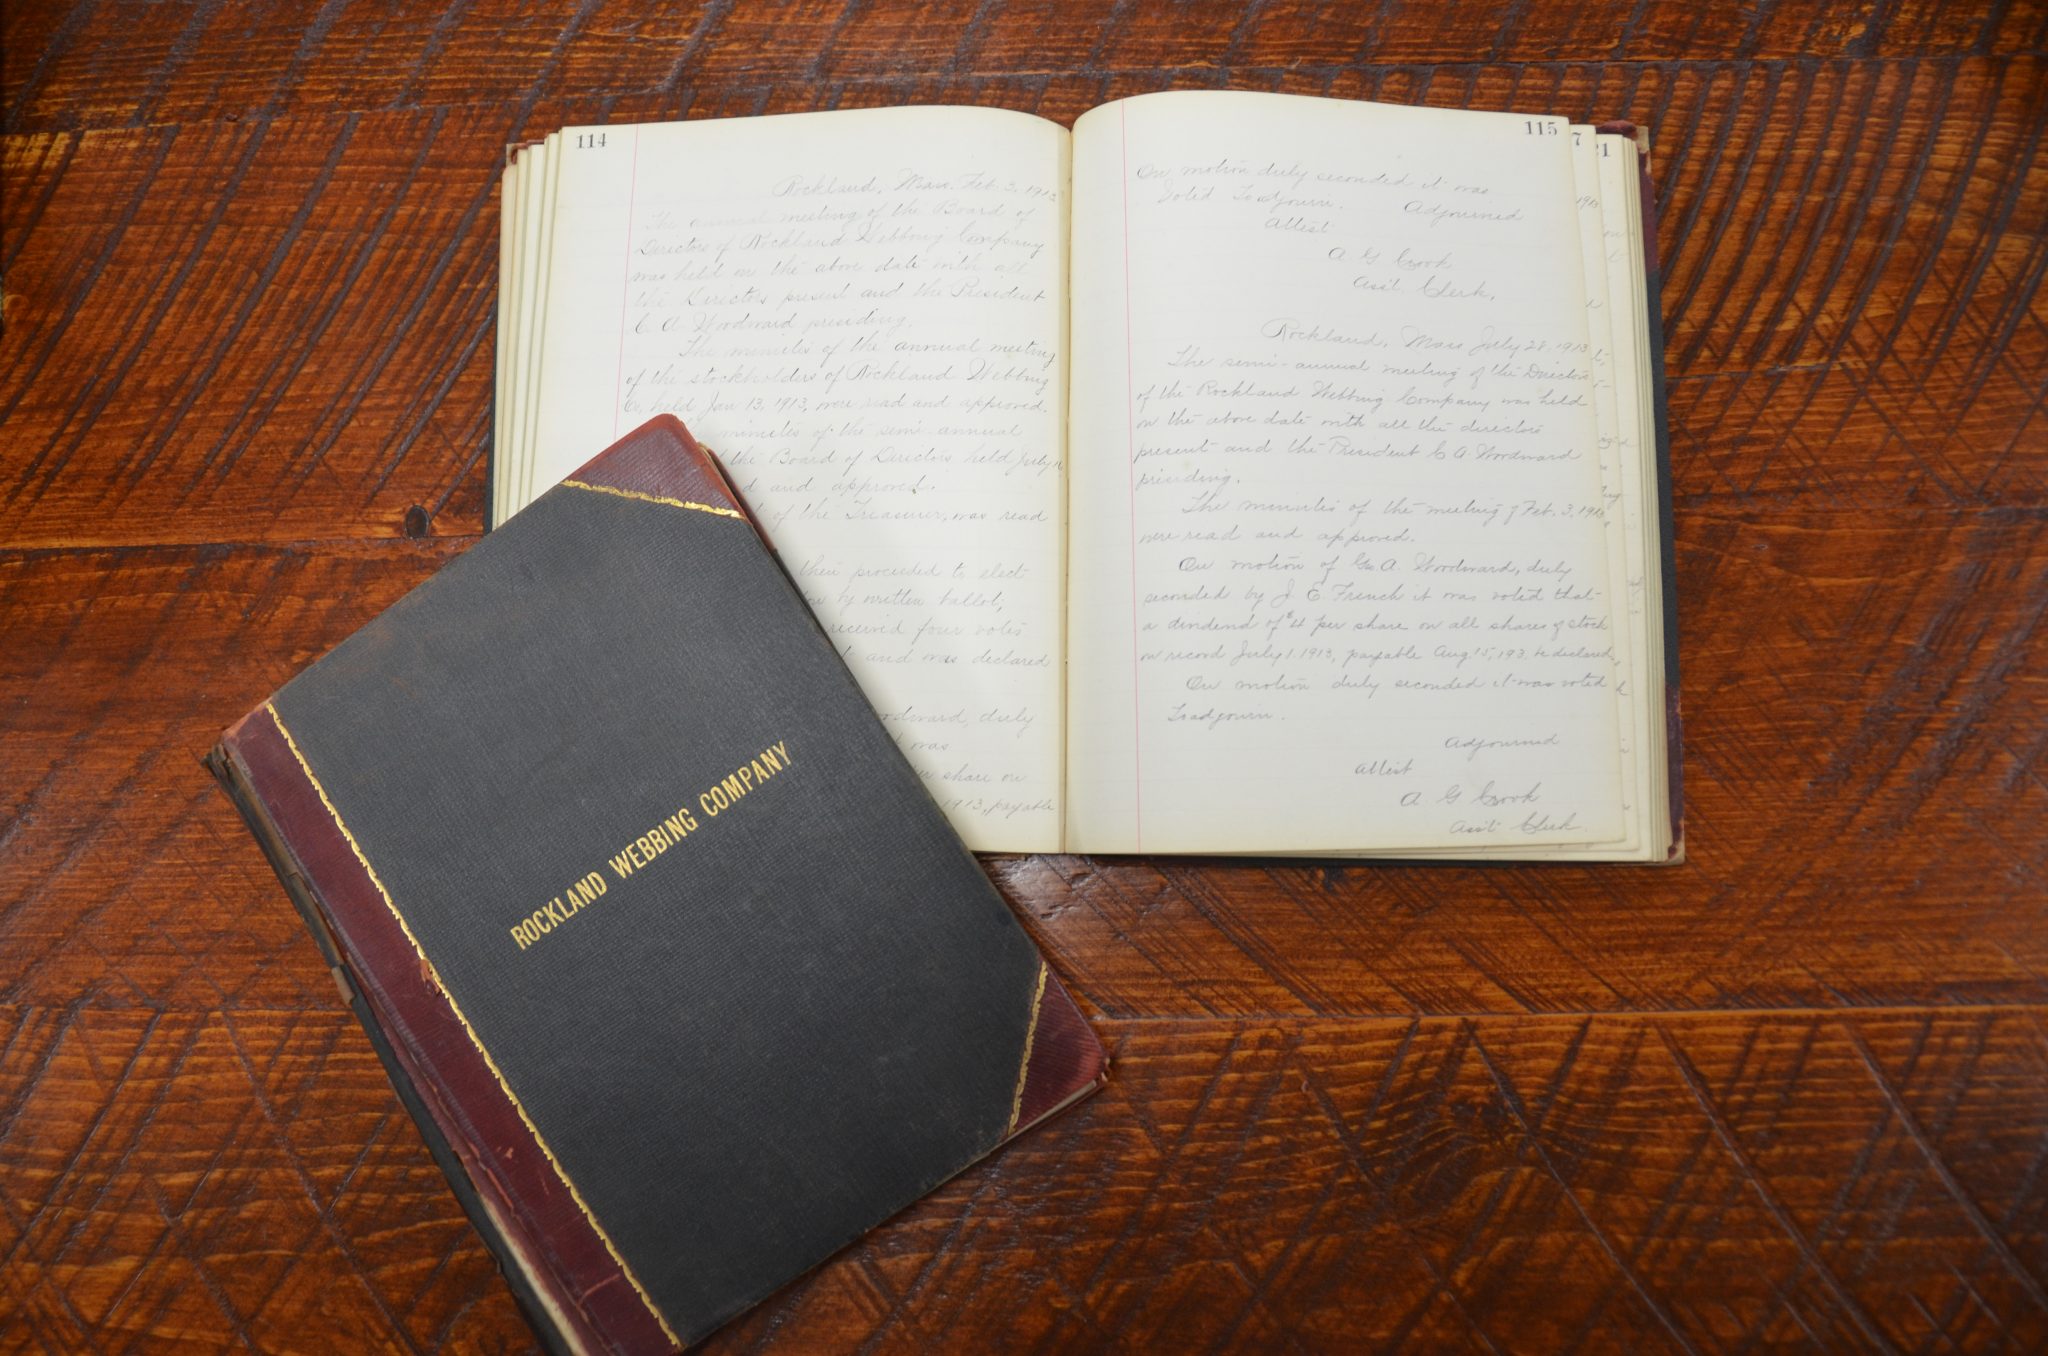 114
Rockland, Mass. Feb. 3, 1913
The annual meeting of the Board of
Directors of Rockland Webbing Company
was held on the above date with all
the Directors present and the President
C. A. Woodward presiding.
The minutes of the annual meeting
of the stockholders of Rockland Webbing
Co, held Jan 13, 1913, were read and approved.
minutes of the semi-annual
the Board of Directors held July
d and approved.
of the Treasurer, was read
then proceeded to elect
by written ballot,
received four votes
and was declared
odward, duly
was
share on
1913, payable
115
On motion duly seconded it was
Voted To adjourn. Adjourned
Attest
A G Crook
Ass't. Clerk.
Rockland, Mass July 28, 1913
The semi-annual meeting of the Directors
of the Rockland Webbing Company was held
on the above date with all the directors
present and the President C A Woodward
presiding.
The minutes of the meeting of Feb. 3, 1913
were read and approved.
On motion of Geo. A. Woodward, duly
seconded by J. E. French it was voted that
a dividend of $4 per share on all shares of stock
on record July 1 1913, payable Aug. 15, 193. be declared.
On motion duly seconded it was voted
To adjourn.
Adjourned
Attest
A G Crook
Ass't Clerk.
7
21
ROCKLAND WEBBING COMPANY